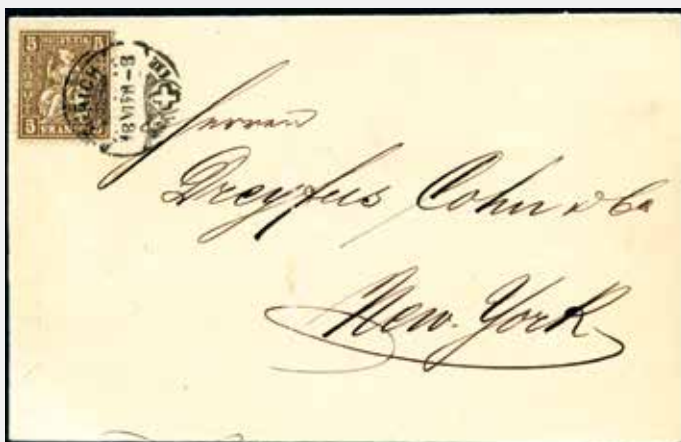 5 HELVETIA 5
5 FRANCO 5
Herren
Dreyfus Cohn & Co
New-York